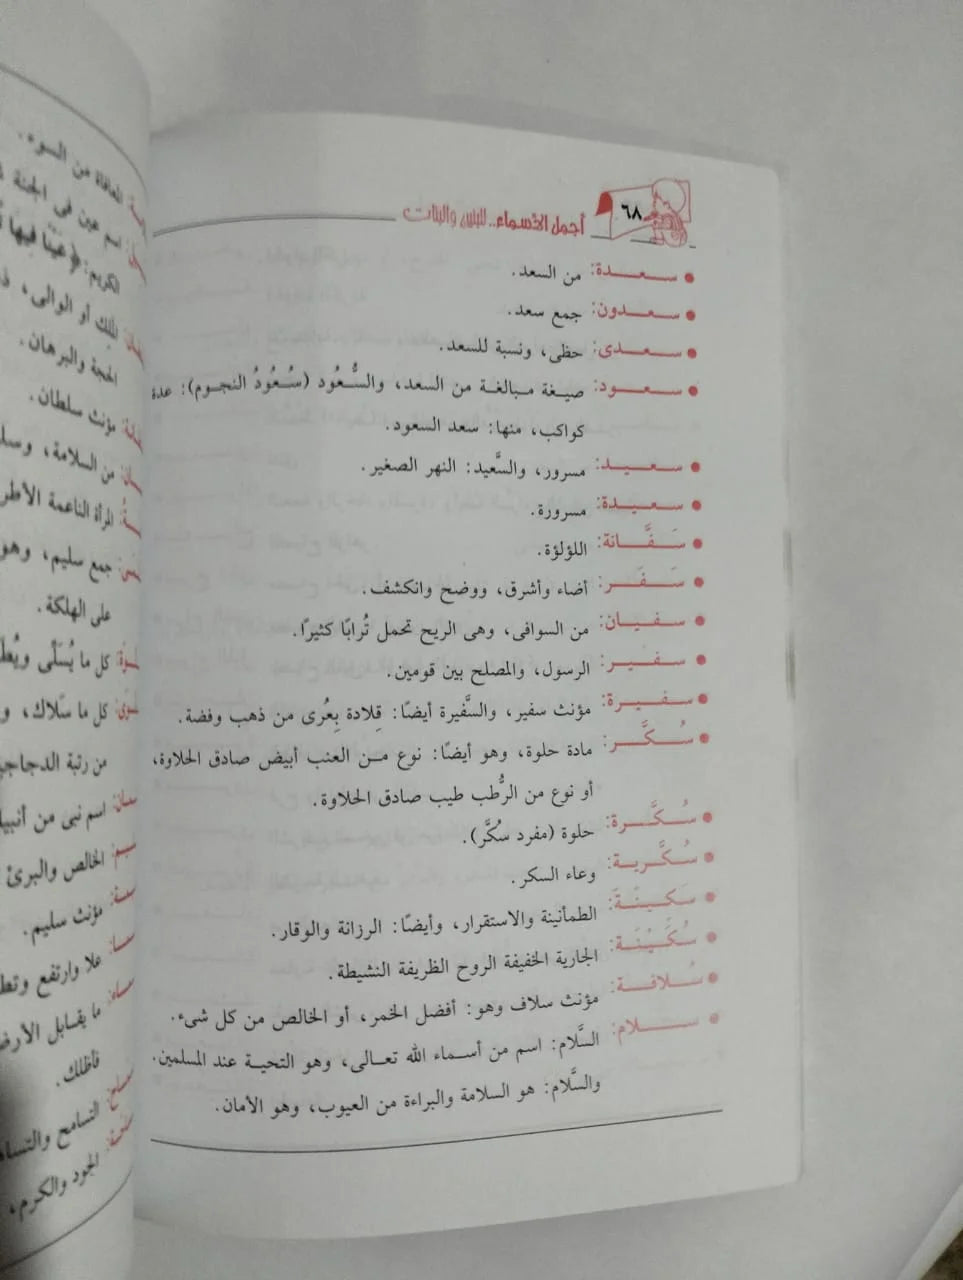 ٦٨
أجمل الأسماء.. للبنين والبنات
• سعدة: من السعد.
• سعدون: جمع سعد.
• سعدى: حظى، ونسبة للسعد.
• سعود: صيغة مبالغة من السعد، والسُّعُود (سُعُودُ النجوم): عدة
كواكب، منها: سعد السعود.
• سعيد: مسرور، والسَّعيد: النهر الصغير.
• سعيدة: مسرورة.
• سَفَّانة: اللؤلؤة.
• سَفَر: أضاء وأشرق، ووضح وانكشف.
• سفيان: من السوافى، وهى الريح تحمل تُرابًا كثيرًا.
• سفير: الرسول، والمصلح بين قومين.
• سفيرة: مؤنث سفير، والسَّفيرة أيضًا: قِلادة بِعُرى من ذهب وفضة.
• سُكَّر: مادة حلوة، وهو أيضًا: نوع من العنب أبيض صادق الحلاوة،
أو نوع من الرُّطب طيب صادق الحلاوة.
• سُكَّرة: حلوة (مفرد سُكَّر).
• سُكَّرية: وعاء السكر.
• سَكينَة: الطمأنينة والاستقرار، وأيضًا: الرزانة والوقار.
• سُكَيْنَة: الجارية الخفيفة الروح الظريفة النشيطة.
• سُلافة: مؤنث سلاف وهو: أفضل الخمر، أو الخالص من كل شىء.
• سلام: السَّلام: اسم من أسماء الله تعالى، وهو التحية عند المسلمين.
والسَّلام: هو السلامة والبراءة من العيوب، وهو الأمان.
المعافاة من السوء.
اسم عين فى الجنة
الكريم: ﴿عينًا فيها
الملك أو الوالى،
الحجة والبرهان.
مؤنث سلطان.
من السلامة،
المرأة الناعمة
جمع سليم، وهو
على الهلكة.
كل ما يُسَلَّى
كل ما سَلاك،
من رتبة
اسم نبى من
الخالص والبرئ
مؤنث سليم.
علا وارتفع
ما يقابل
فأظلك.
التسامح
الجود والكرم،